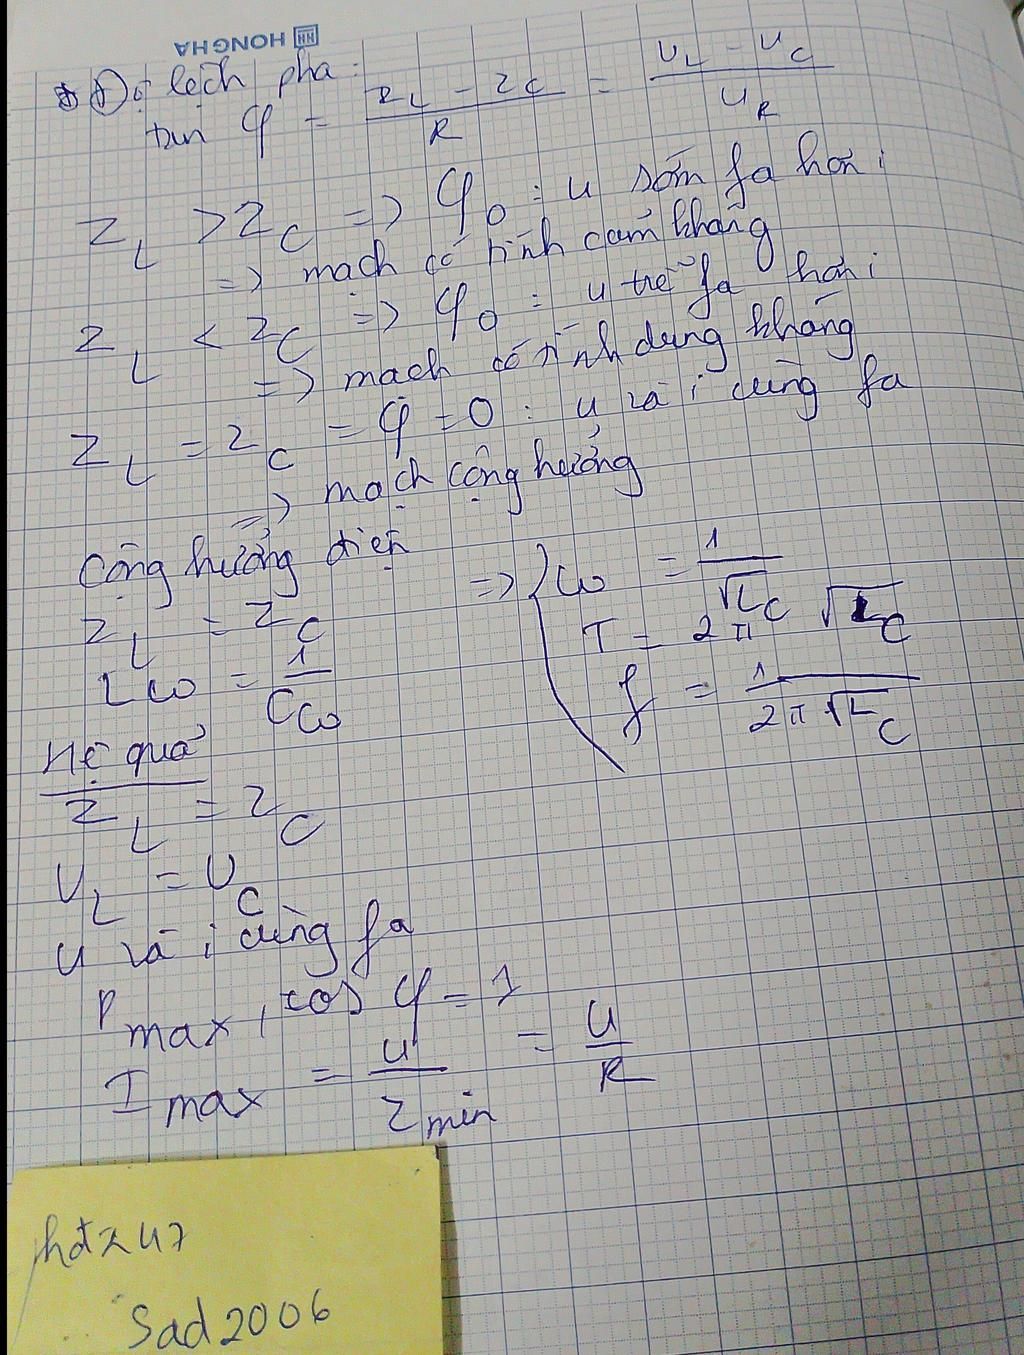 HONGHA
* Độ lệch pha:
tan φ = (Z_L - Z_C)/R = (U_L - U_C)/U_R
Z_L > Z_C => φ_0 : u sớm fa hơn i
=> mạch có tính cảm kháng
Z_L < Z_C => φ_0 : u trễ fa hơn i
=> mạch có tính dung kháng
Z_L = Z_C = φ = 0 : u và i cùng fa
=> mạch cộng hưởng
Cộng hưởng điện
=> { ω = 1/√L_C
Z_L = Z_C
T = 2π √L_C
Lω = 1/Cω
f = 1/2π√L_C
Hệ quả
Z_L = Z_C
U_L = U_C
u và i cùng fa
P max, cos φ = 1
I max = U/Z min = U/R
hdz47
Sad2006